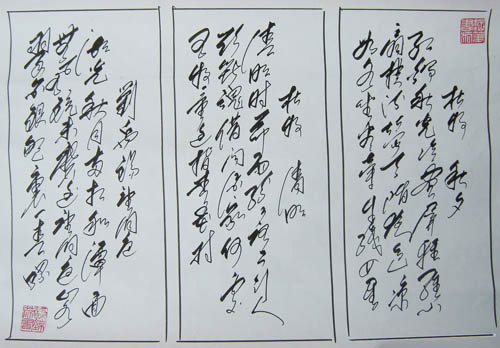 杜牧 秋夕
红烛秋光冷画屏轻罗小
扇扑流萤天阶夜色凉
如水坐看牵牛织女星
杜牧 清明
清明时节雨纷纷路上行人
欲断魂借问酒家何处
有牧童遥指杏花村
劉禹锡望洞庭
湖光秋月两相和潭面
無风镜未磨遥望洞庭山水
翠白银盘里一青螺